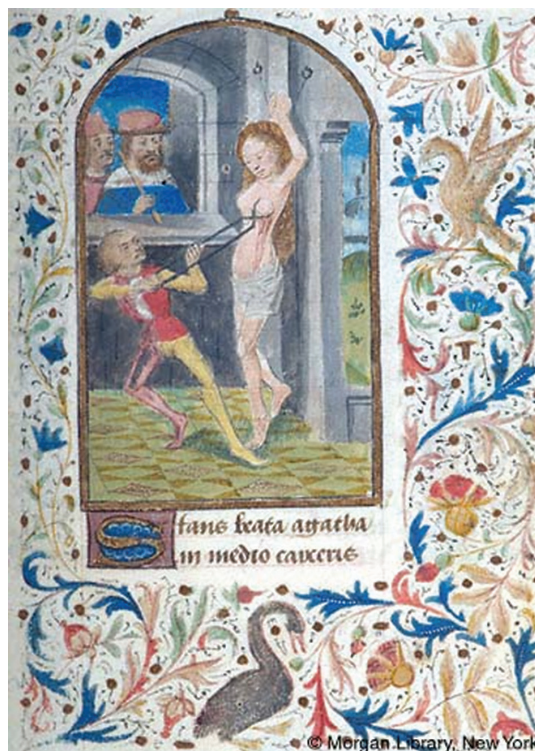 Stans beata agatha
in medio carceris
© Morgan Library, New York